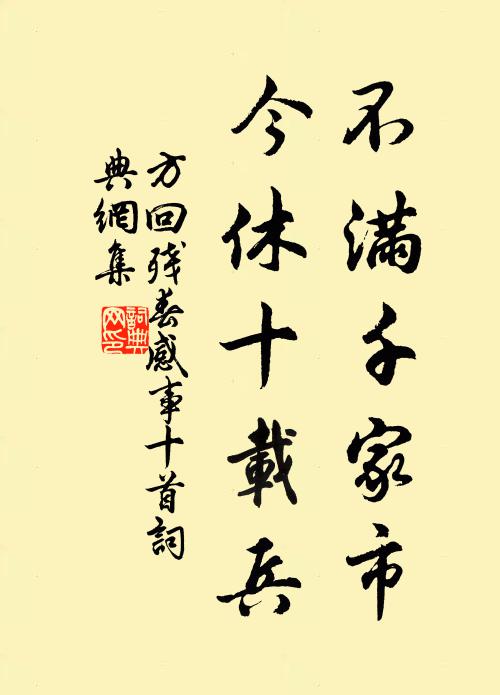 不满千家市
今休十載兵
方回残春感事十首詞
典網集
詞典網印